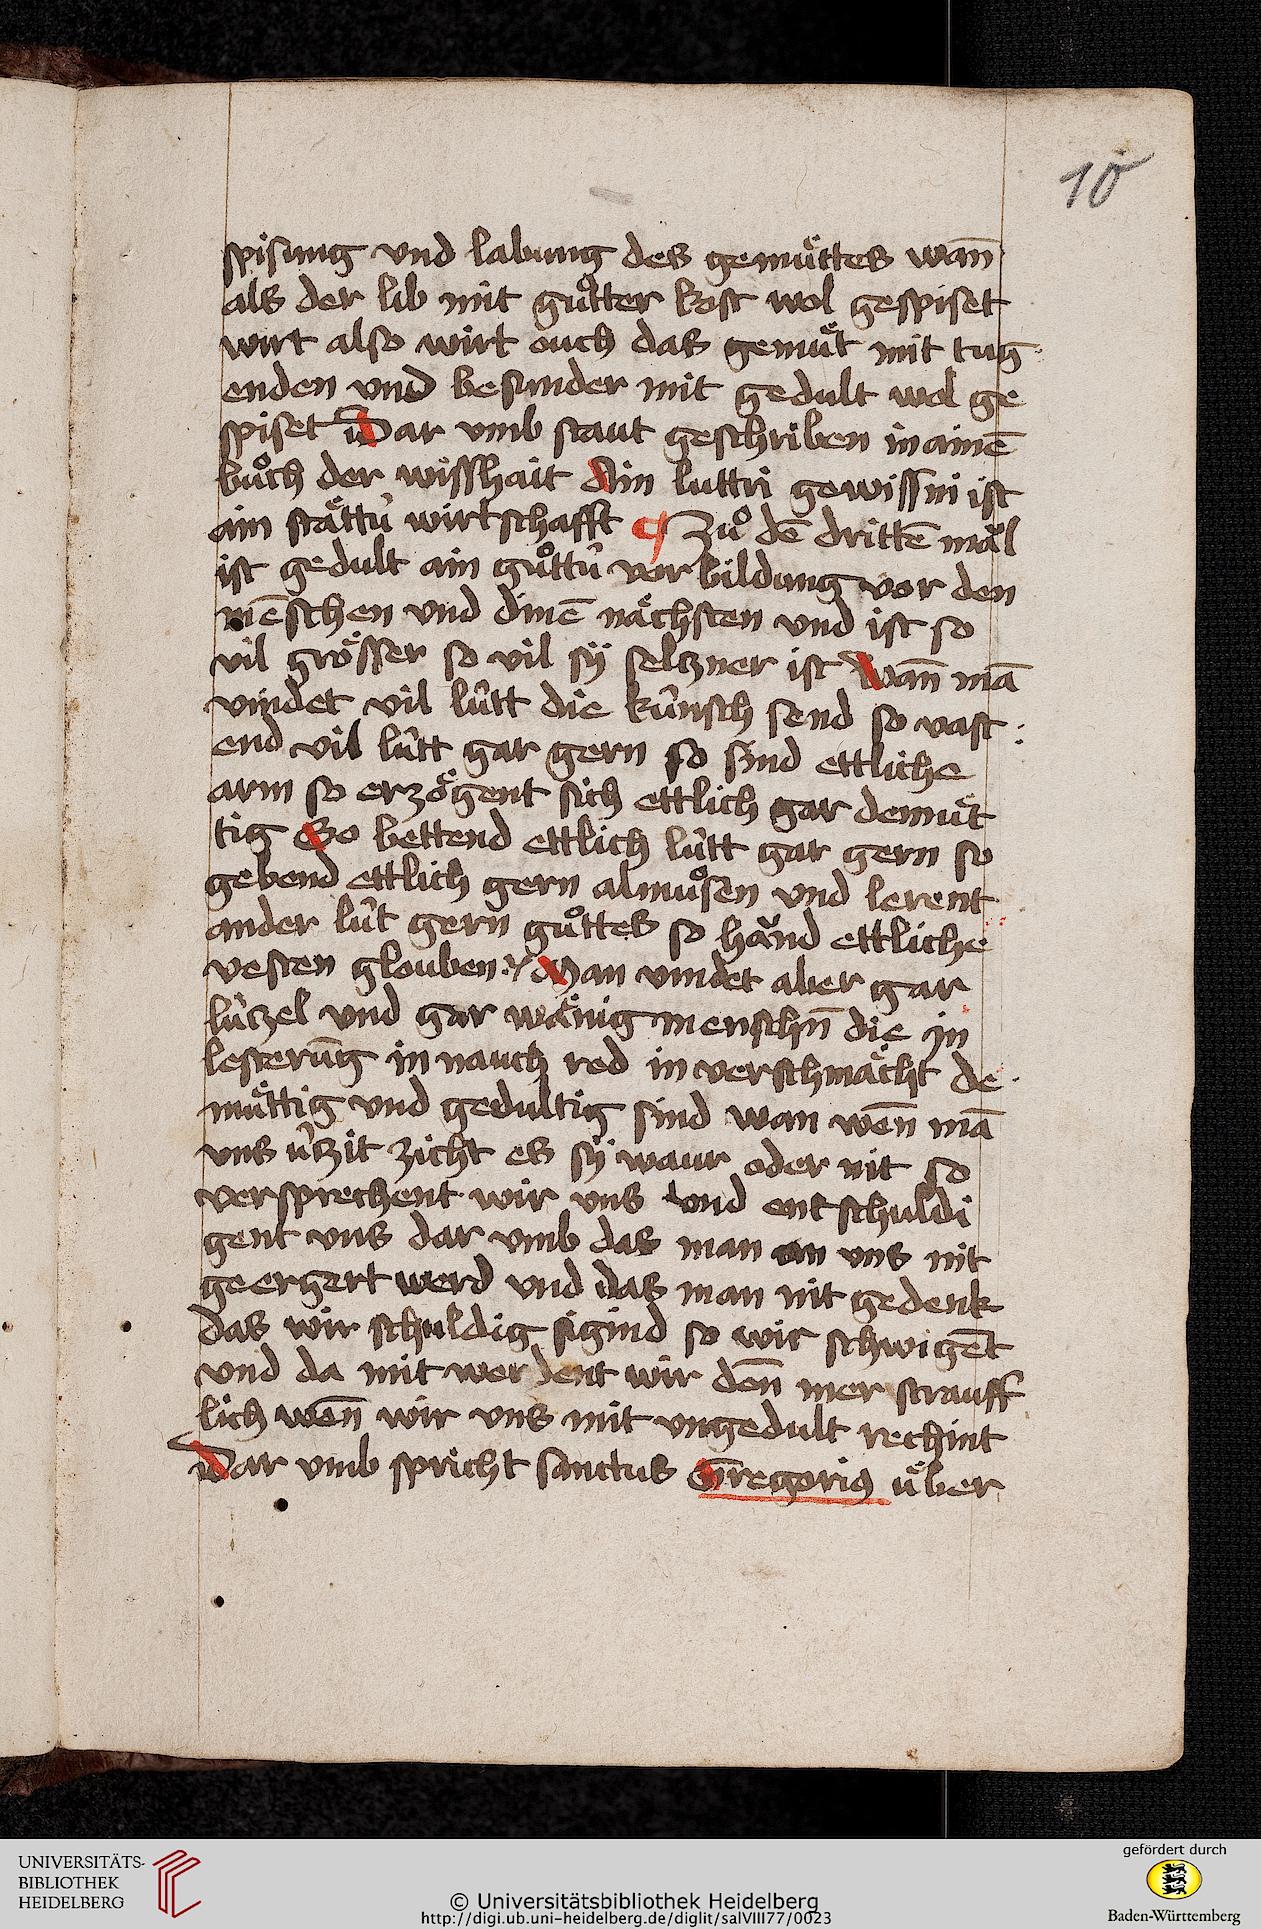 10
spisung vnd labung des gemuͤttes wan̄
als der lib mit guͦtter kost wol gespiset
wirt also wirt ouch das gemuͤt mit tug
enden vnd besunder mit gedult wol ge
spiset Dar vmb staut geschriben in ainē
buͦch der wisshait Ain luttri gewissni ist
ain staͤttu̍ wirtschafft ¶ Zuͦ dē drittē maͤl
ist gedult ain guͦttu̍ vor bildung vor den
mēschen vnd dinē naͤchsten vnd ist so
vil groͤsser so vil sÿ seltzner ist Wan̄ mā
vindet vil lu̍tt die ku̍nsch send so vast
end vil lu̍tt gar gern so sind ettliche
arm so erzoͤgent sich ettlich gar demuͤt
tig So bettend ettlich lu̍tt gar gern so
gebend ettlich gern almuͦsen vnd lerent
ander lu̍t gern guͦttes so haͮnd ettliche
vesten glouben Man vindet aber gar
lu̍tzel vnd gar waͤnig menschn̄ die in
lesterūg in nauch red in verschmaͤcht de
muͤttig vnd gedultig sind wan wen̄ mā
vns u̍tzit zicht es sÿ waur oder nit so
versprechent wir vns vnd entschuldi
gent vns dar vmb das man an vns nit
geergert werd vnd das man nit gedenk
das wir schuldig sigind so wir schwigēt
vnd da mit werdent wir den̄ mer strauff
lich wen̄ wir vns mit vngedult rechint
Dar vmb spricht sanctus Gregorius uͤber
UNIVERSITÄTS-
BIBLIOTHEK
HEIDELBERG
© Universitätsbibliothek Heidelberg
http://digi.ub.uni-heidelberg.de/diglit/salVIII77/0023
gefördert durch
Baden-Württemberg